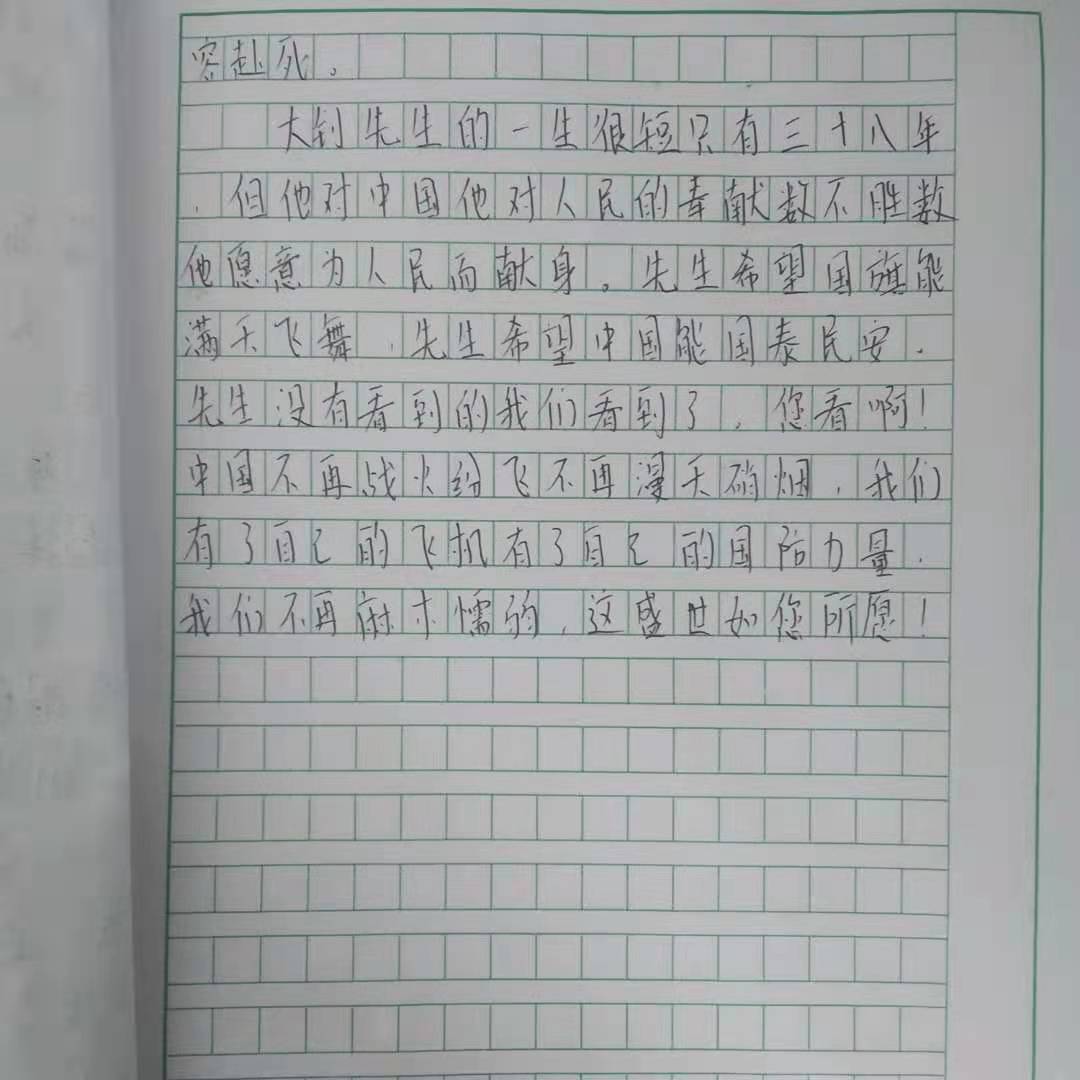 容赴死。
大钊先生的一生很短只有三十八年
，但他对中国他对人民的奉献数不胜数
他愿意为人民而献身。先生希望国旗能
满天飞舞，先生希望中国能国泰民安，
先生没有看到的我们看到了，您看啊！
中国不再战火纷飞不再漫天硝烟，我们
有了自己的飞机有了自己的国防力量，
我们不再麻木懦弱，这盛世如您所愿！